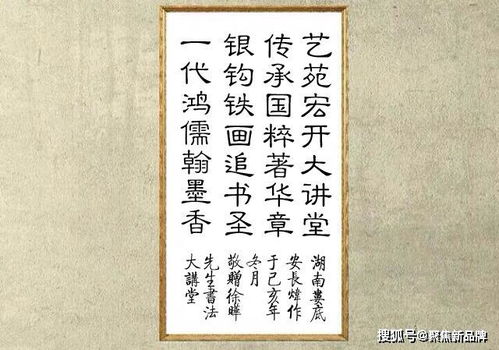 艺苑宏开大讲堂
传承国粹著华章
银钩铁画追书圣
一代鸿儒翰墨香
湖南娄底
安長煒作
于己亥年
冬月
敬贈徐曄
先生書法
大講堂
搜狐号@聚焦新品牌